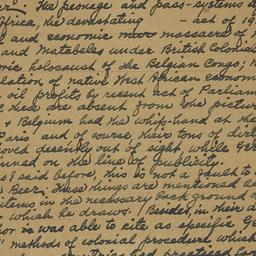 The peonage and pass-systems
Africa, the devastating — act of 19
and economic massacre of
and Matabeles under British Colonial
omic holocaust of the Belgian Congo;
lation of native West African econom
oil profits by recent act of Parliam
these are absent from the picture
& Belgium had the whip-hand at the
Paris and of course, their tons of dirt
oved decently out of sight, while Ge
nned on the line of publicity.
as I said before, this is not a fault to
Beer. These things are mentioned as
items in the necessary background
which he draws. Besides, in their
or is was able to cite as specific G
" methods of colonial procedure which
practiced